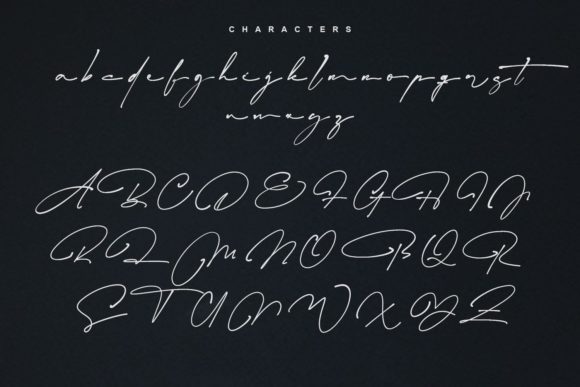 CHARACTERS
abcdefghijklmnopqrst
uvwxyz
ABCDEFGHIJ
KLMNOPQR
STUVWXYZ